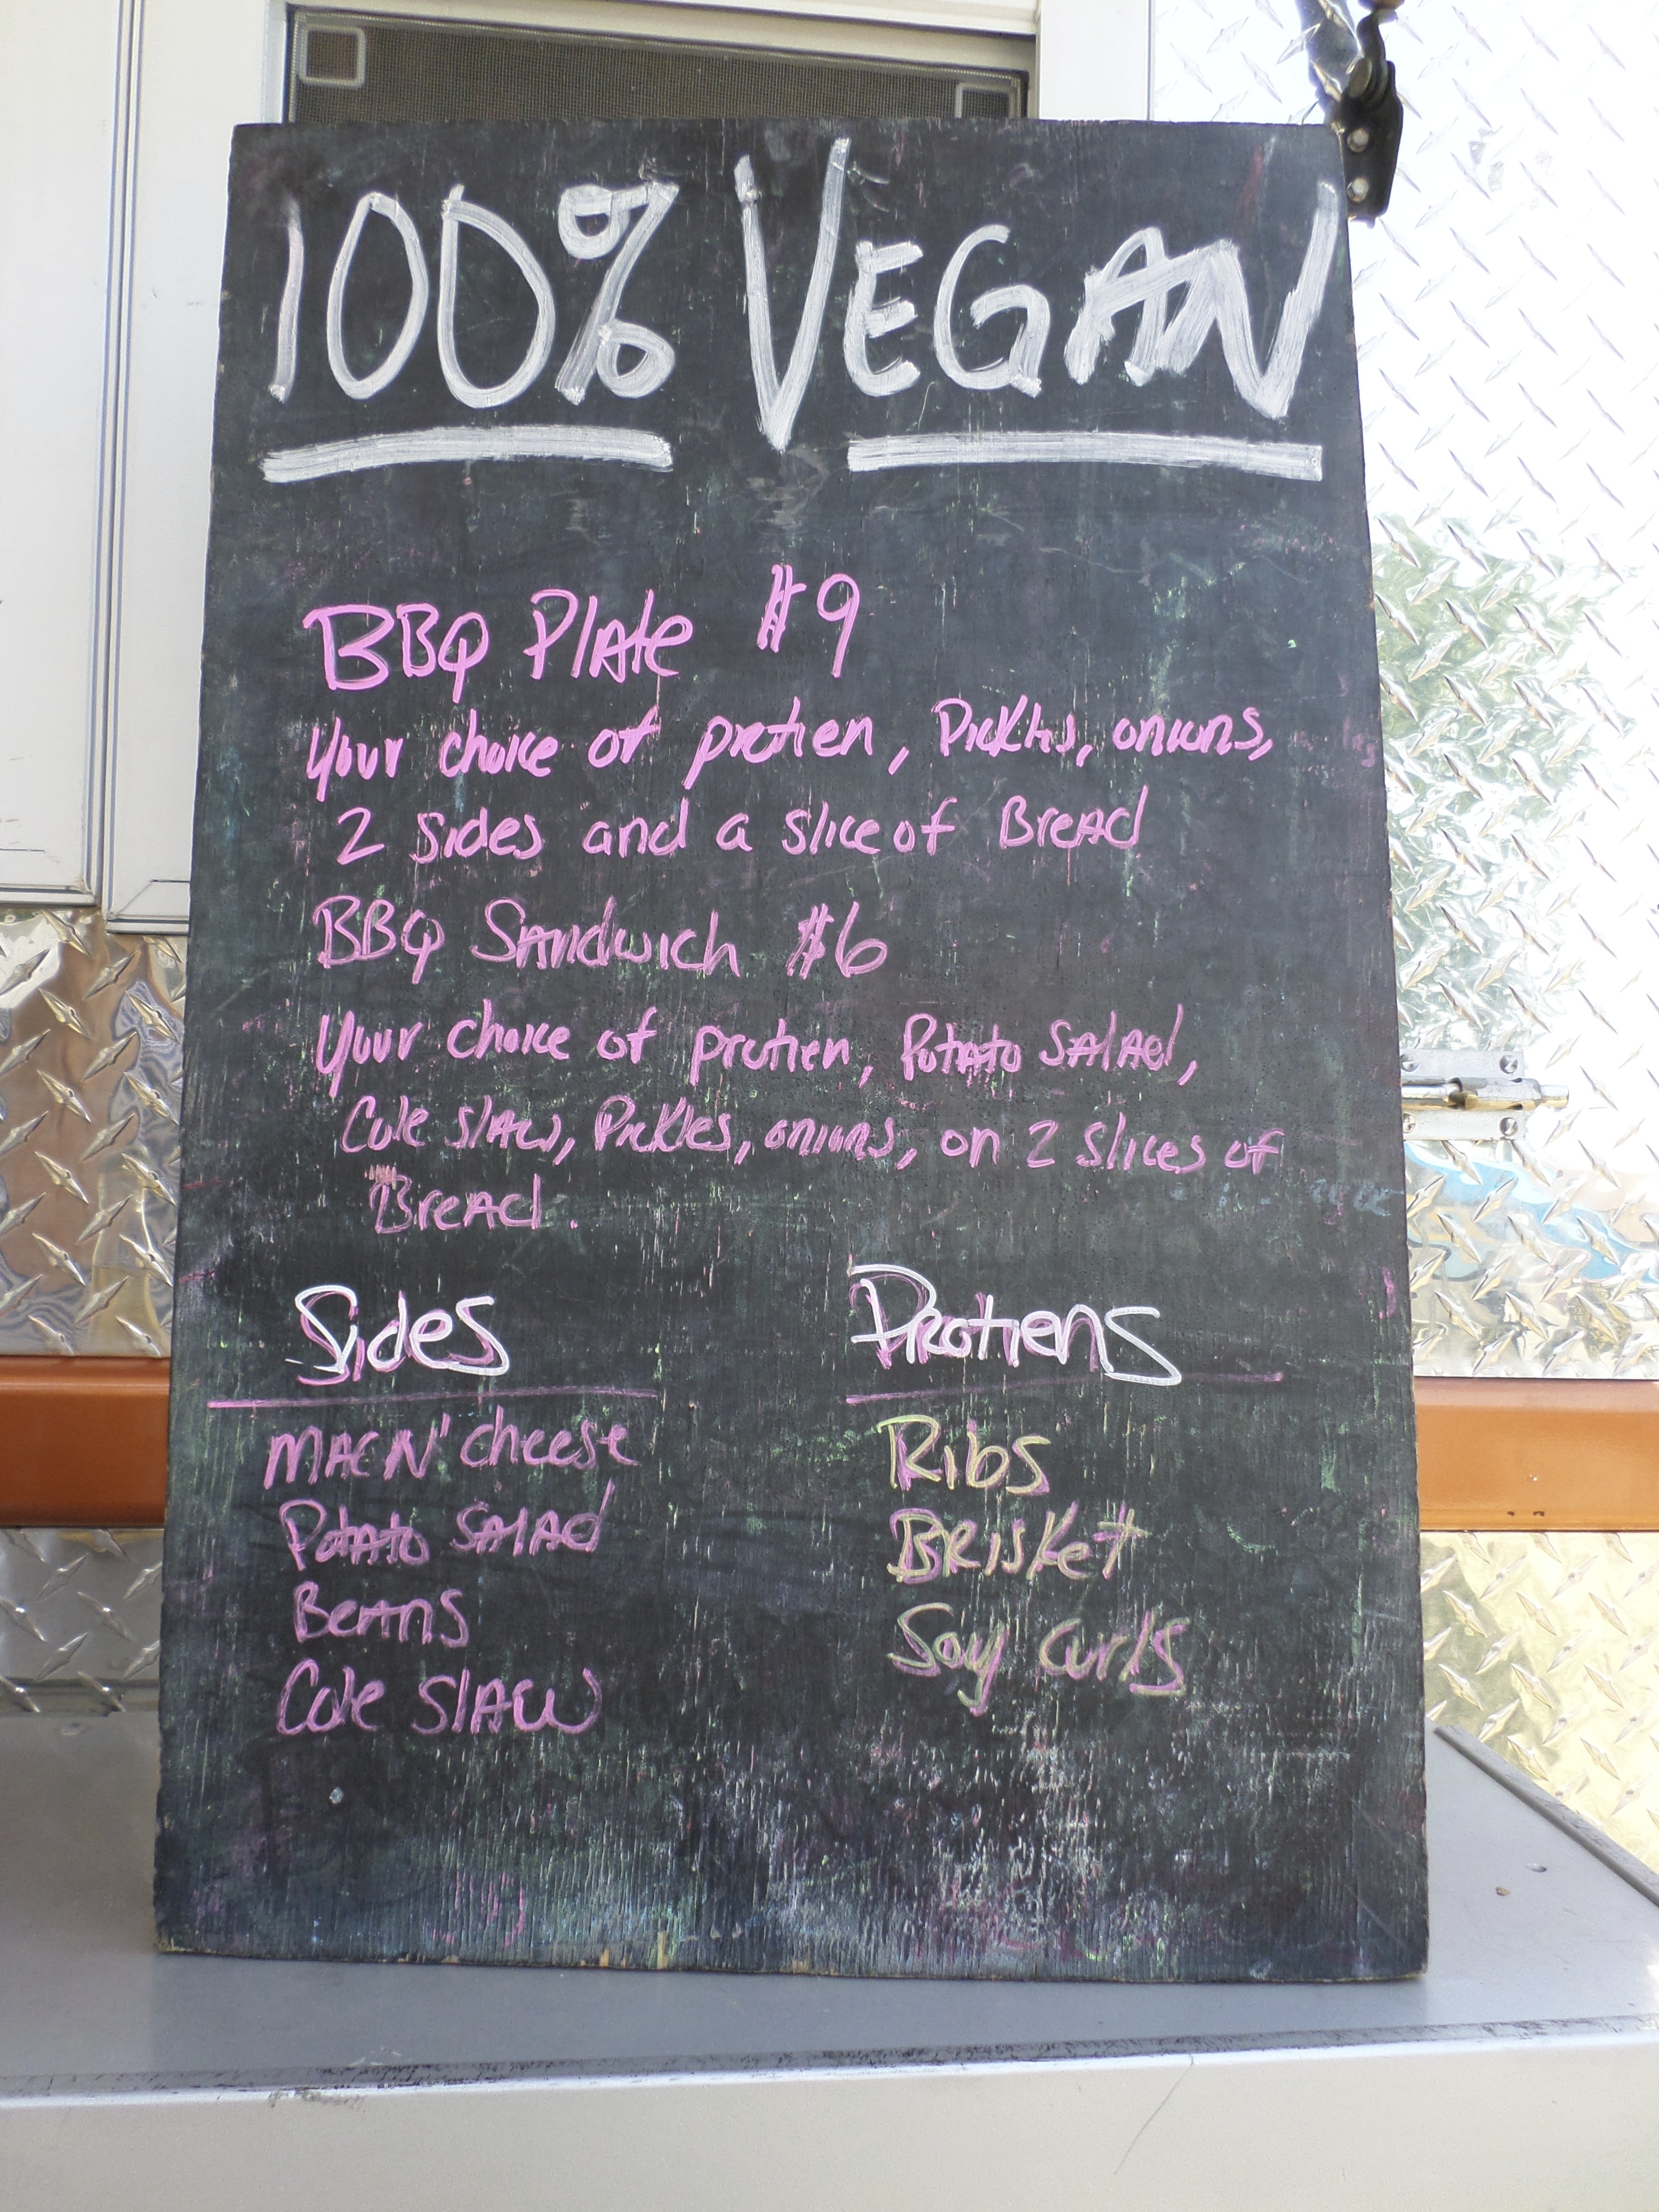 100% VEGAN
BBQ Plate $9
Your choice of protien, Pickles, onions,
2 sides and a slice of Bread
BBQ Sandwich $6
Your choice of protien, Potato Salad,
Cole slaw, Pickles, onions, on 2 slices of
Bread.
Sides
MAC N' cheese
Potato SALAd
Beans
Cole SLAW
Protiens
Ribs
BRISKet
Soy curls